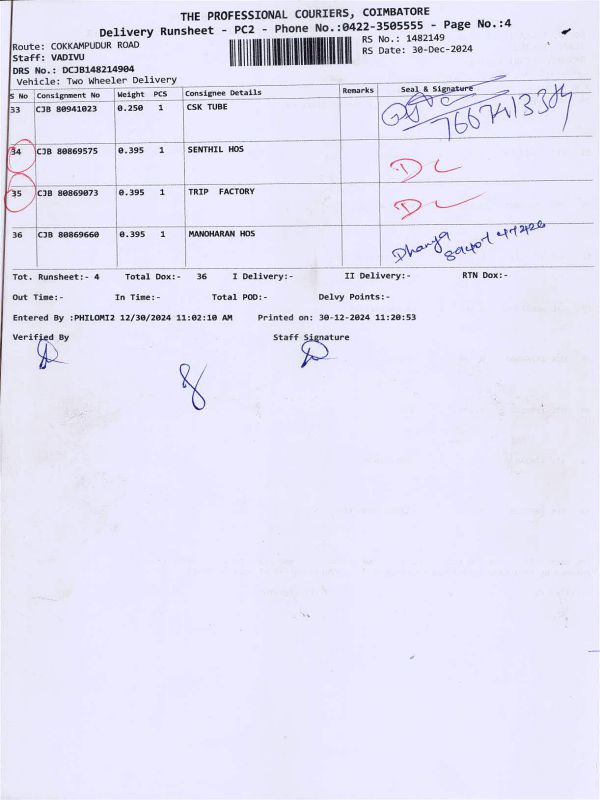 THE PROFESSIONAL COURIERS, COIMBATORE
Delivery Runsheet - PC2 - Phone No.:0422-3505555 - Page No.:4
Route: COKKAMPUDUR ROAD
RS No.: 1482149
Staff: VADIVU
RS Date: 30-Dec-2024
DRS No.: DCJB148214904
Vehicle: Two Wheeler Delivery
S No Consignment No Weight PCS Consignee Details Remarks Seal & Signature
33 CJB 80941023 0.250 1 CSK TUBE
34 CJB 80869575 0.395 1 SENTHIL HOS DL
35 CJB 80869073 0.395 1 TRIP FACTORY DL
36 CJB 80869660 0.395 1 MANOHARAN HOS Dhanya
Tot. Runsheet:- 4 Total Dox:- 36 I Delivery:- II Delivery:- RTN Dox:-
Out Time:- In Time:- Total POD:- Delvy Points:-
Entered By :PHILOMI2 12/30/2024 11:02:10 AM Printed on: 30-12-2024 11:20:53
Verified By Staff Signature